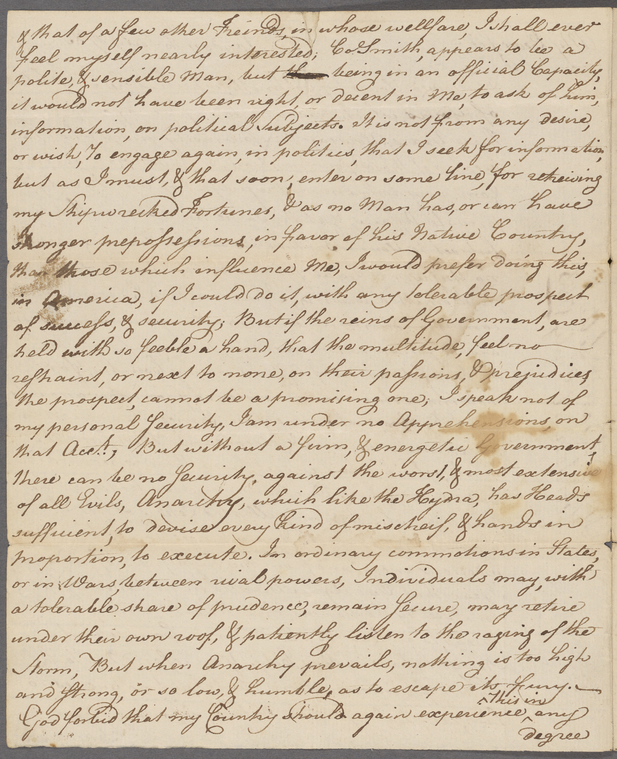 & that of a few other Freinds, in whose wellfare, I shall ever
feel myself nearly interested; Col Smith, appears to be a
polite, & sensible Man, but being in an official Capacity,
it would not have been right, or decent in Me, to ask of him,
information, on political Subjects. It is not from any desire,
or wish, to engage again, in politics, that I seek for information,
but as I must, & that soon, enter on some line, for retreiving
my Shipwrecked Fortunes, & as no Man has, or can have
stronger prepossessions, in favor of his Native Country,
than those which influence Me, I would prefer doing this,
in America, if I could do it, with any tolerable prospect
of success, & security; But if the reins of Government, are
held with so feeble a hand, that the multitude, feel no
restraint, or next to none, on their passions, & prejudices,
the prospect, cannot be a promising one; I speak not of
my personal Security, I am under no Apprehensions, on
that Acct., But without a firm, & energetic Government,
there can be no Security, against the worst, & most extensive
of all Evils, Anarchy, which like the Hydra, has Heads
sufficient, to devise every kind of mischeif, & hands in
proportion, to execute. In ordinary commotions in States,
or in Wars, between rival powers, Individuals may, with
a tolerable share of prudence, remain secure, may retire
under their own roof, & patiently listen to the raging of the
Storm, But when Anarchy prevails, nothing is too high
and strong, or so low, & humble, as to escape its fury.
God forbid that my Country should again experience this in any
degree